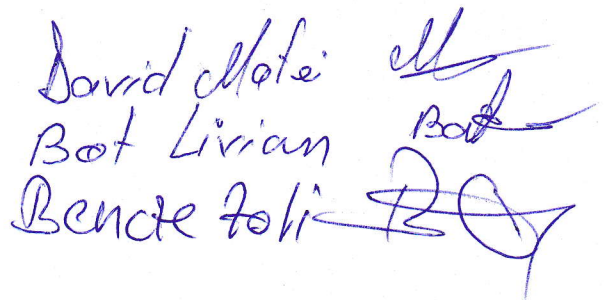 David Matei
Bot Livian Bot
Bencze Zoli